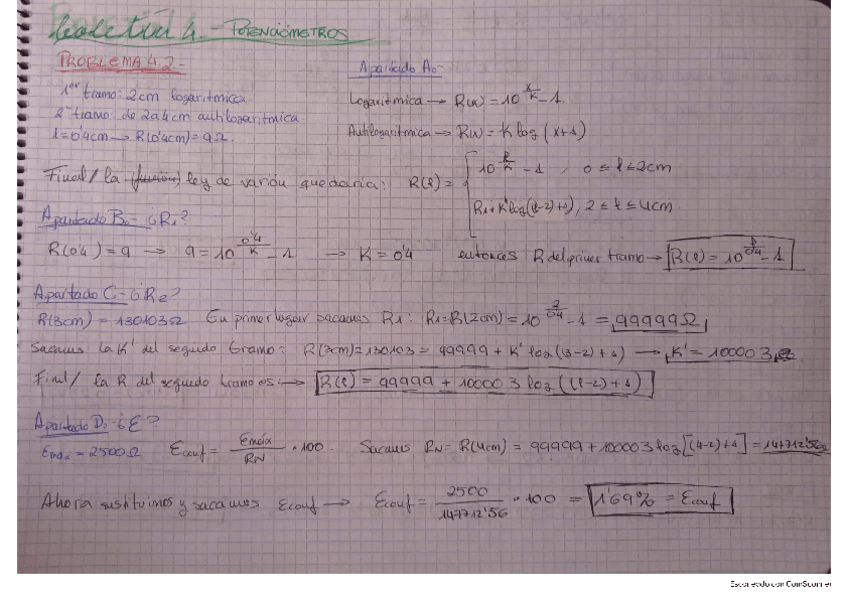 Boletín 4.- POTENCIÓMETROS
PROBLEMA 4.2-
1er tramo: 2cm logarítmica
2º tramo: de 2 a 4cm antilogarítmica
l=0'4cm → R(0'4cm)=9Ω.
Apartado A-
Logarítmica → R(x) = 10^(x/K) - 1.
Antilogarítmica → R(x) = K log (x+1)
Final/ la (función) ley de varión quedaría: R(l) = { 10^(l/K) - 1 , 0 ≤ l ≤ 2cm
R1 + K' log((l-2)+1), 2 ≤ l ≤ 4cm.
Apartado B- ¿R1?
R(0'4) = 9 → 9 = 10^(0'4/K) - 1 → K = 0'4 entonces R del primer tramo → R(l) = 10^(l/0'4) - 1
Apartado C- ¿R2?
R(3cm) = 130103Ω En primer lugar sacamos R1: R1=R(2cm) = 10^(2/0'4) - 1 = 99999Ω
Sacamos la K' del segundo tramo: R(3cm) = 130103 = 99999 + K' log((3-2)+1) → K' = 100003
Final/ la R del segundo tramo es: → R(l) = 99999 + 100003 log((l-2)+1)
Apartado D- ¿Ɛ?
Ɛmáx = 2500Ω Ɛconf = Ɛmáx/RN · 100. Sacamos RN = R(4cm) = 99999 + 100003 log[(4-2)+1] = 147712'56Ω
Ahora sustituimos y sacamos Ɛconf → Ɛconf = 2500/147712'56 · 100 = 1'69% = Ɛconf
Escaneado con CamScanner